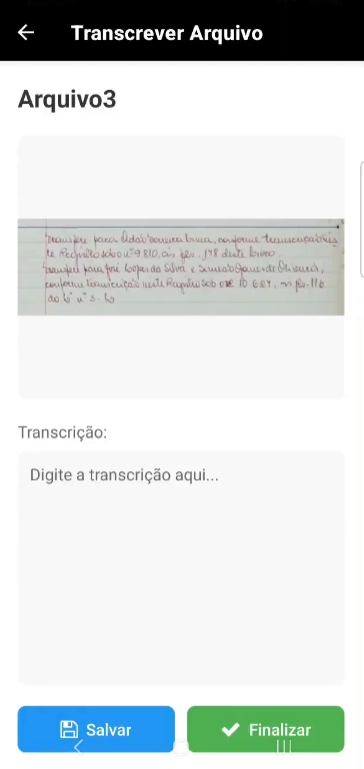 Transcrever Arquivo
Arquivo3
transferi para Adão Correia Lima, conforme transcrição nes
te Registro sob o nº 9.810, às fls. 148 deste livro.
transferi para José Lopes da Silva e Gomes de Oliveira,
conforme transcrição neste Registro sob o nº 10.687, as fls. 116
do Lº nº 3-
Transcrição:
Digite a transcrição aqui...
Salvar
Finalizar